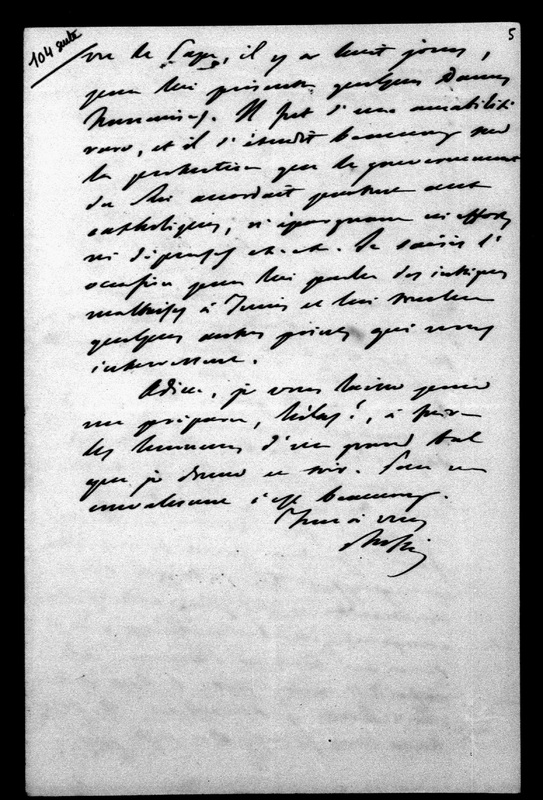 104 suite
5
vu le Pape, il y a huit jours,
pour lui présenter quelques Dames
Roumaines. Il fut d'une amabilité
rare, et il s'étendit beaucoup sur
la protection que le gouvernement
du Roi accordait partout aux
catholiques, n'épargnant ni efforts
ni dépenses etc. etc. Je saisis l'
occasion pour lui parler des intrigues
maltaises à Tunis et lui toucher
quelques autres points qui nous
intéressent.
Adieu, je vous laisse pour
me préparer, hélas!, à faire
les honneurs d'un grand bal
que je donne ce soir. Pour un
convalescent c'est beaucoup.
Tout à vous